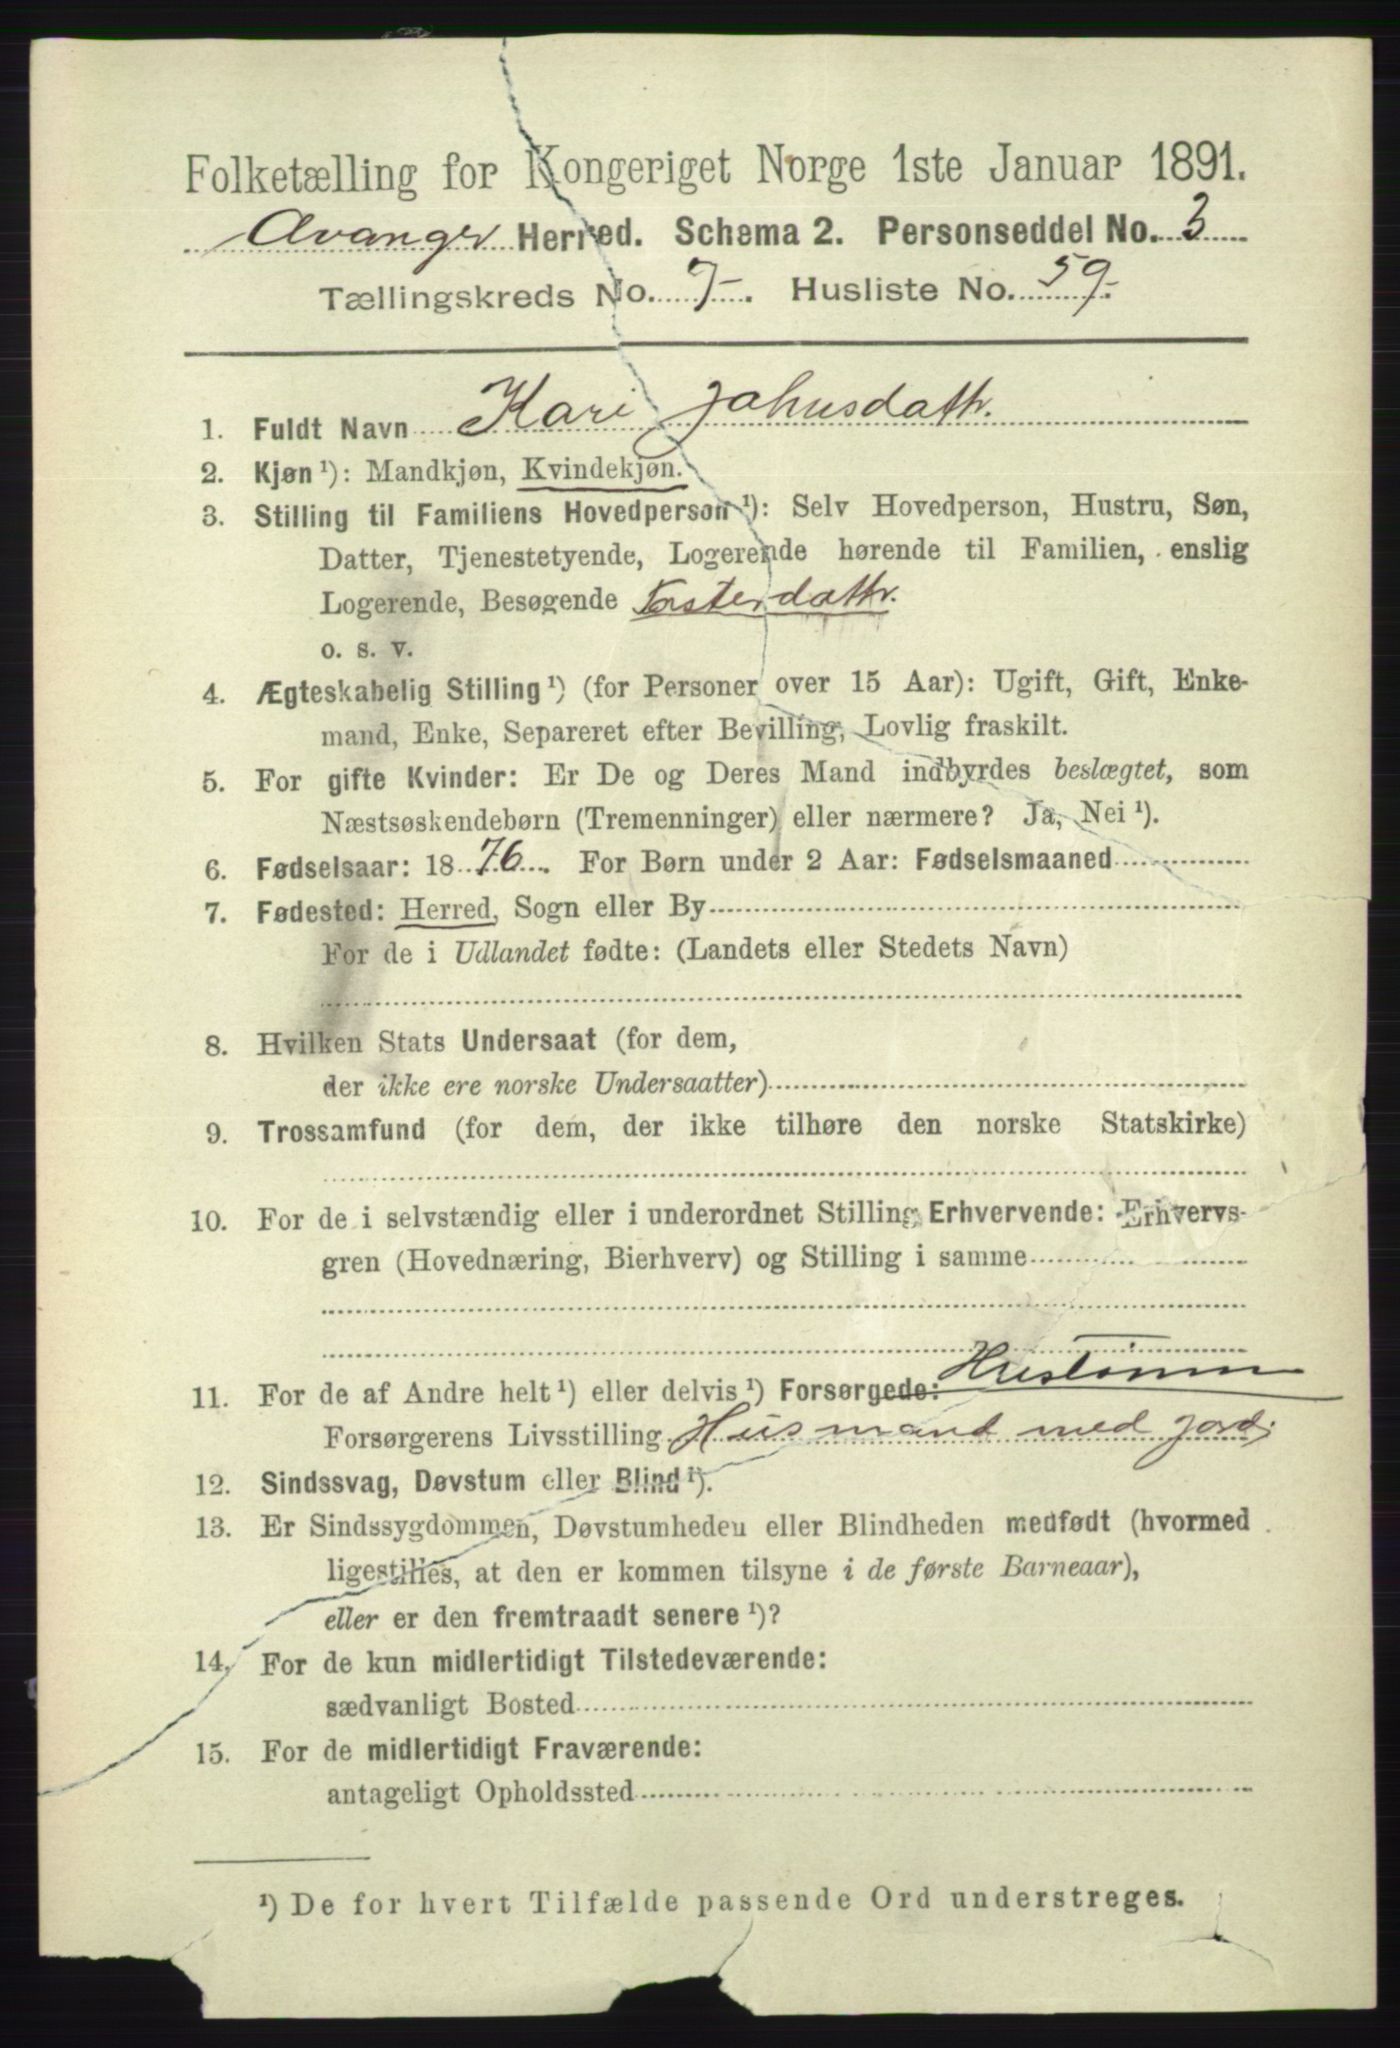 Folketælling for Kongeriget Norge 1ste Januar 1891.
Avanger Herred. Schema 2. Personseddel No. 3
Tællingskreds No. 7. Husliste No. 59.
1. Fuldt Navn Kari Johnsdattr.
2. Kjøn ¹): Mandkjøn, Kvindekjøn.
3. Stilling til Familiens Hovedperson ¹): Selv Hovedperson, Hustru, Søn,
Datter, Tjenestetyende, Logerende hørende til Familien, enslig
Logerende, Besøgende Fosterdattr.
o. s. v.
4. Ægteskabelig Stilling ¹) (for Personer over 15 Aar): Ugift, Gift, Enke-
mand, Enke, Separeret efter Bevilling, Lovlig fraskilt.
5. For gifte Kvinder: Er De og Deres Mand indbyrdes beslægtet, som
Næstsøskendebørn (Tremenninger) eller nærmere? Ja, Nei ¹).
6. Fødselsaar: 1876. For Børn under 2 Aar: Fødselsmaaned
7. Fødested: Herred, Sogn eller By
For de i Udlandet fødte: (Landets eller Stedets Navn)
8. Hvilken Stats Undersaat (for dem,
der ikke ere norske Undersaatter)
9. Trossamfund (for dem, der ikke tilhøre den norske Statskirke)
10. For de i selvstændig eller i underordnet Stilling Erhvervende: Erhvervs-
gren (Hovednæring, Bierhverv) og Stilling i samme
11. For de af Andre helt ¹) eller delvis ¹) Forsørgede:
Forsørgerens Livsstilling Husmand med jord
12. Sindssvag, Døvstum eller Blind ¹).
13. Er Sindssygdommen, Døvstumheden eller Blindheden medfødt (hvormed
ligestilles, at den er kommen tilsyne i de første Barneaar),
eller er den fremtraadt senere ¹)?
14. For de kun midlertidigt Tilstedeværende:
sædvanligt Bosted
15. For de midlertidigt Fraværende:
antageligt Opholdssted
¹) De for hvert Tilfælde passende Ord understreges.